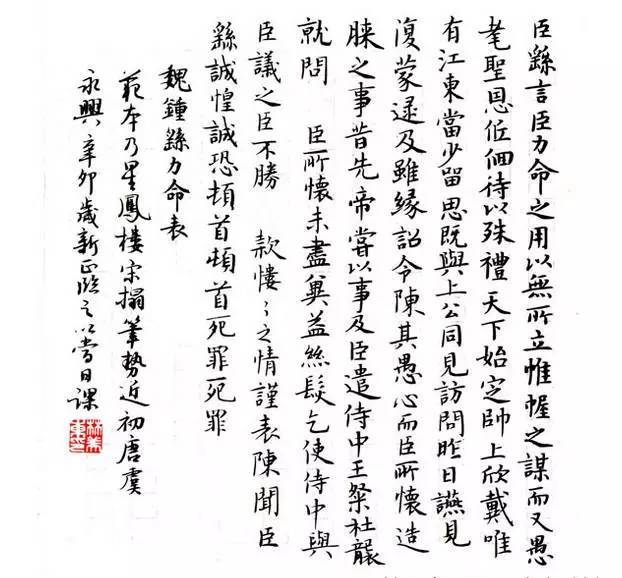 臣繇言臣力命之用以無所立惟幄之謀而又愚
耄聖恩低佪待以殊禮天下始定帥上欣戴唯
有江東當少留思既與上公同見訪問昨日讌見
復蒙逮及雖緣詔令陳其愚心而臣所懷造
膝之事昔先帝嘗以事及臣遣侍中王粲杜襲
就問 臣所懷未盡冀益絲髮乞使侍中與
臣議之臣不勝 款慺々之情謹表陳聞臣
繇誠惶誠恐頓首頓首死罪死罪
魏鍾繇力命表
範本乃星鳳樓宋搨筆勢近初唐虞
永興 辛卯歲新正臨之以當日課